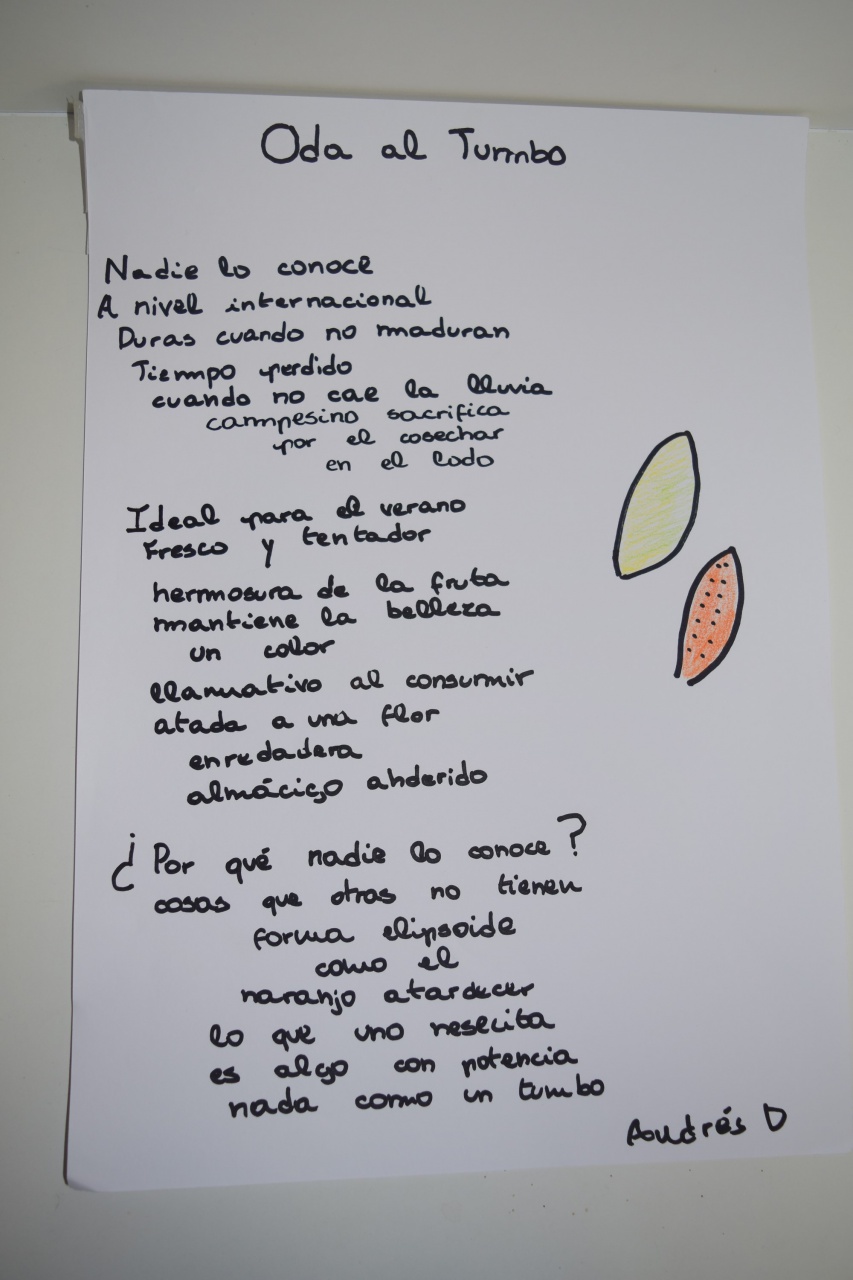 Oda al Tumbo
Nadie lo conoce
A nivel internacional
Duras cuando no maduran
Tiempo perdido
cuando no cae la lluvia
campesino sacrifica
por el cosechar
en el lodo
Ideal para el verano
Fresco y tentador
hermosura de la fruta
mantiene la belleza
un color
llamativo al consumir
atada a una flor
enredadera
almácigo ahderido
¿Por qué nadie lo conoce?
cosas que otras no tienen
forma elipsoide
como el
naranjo atardecer
lo que uno nesecita
es algo con potencia
nada como un tumbo
Andrés D